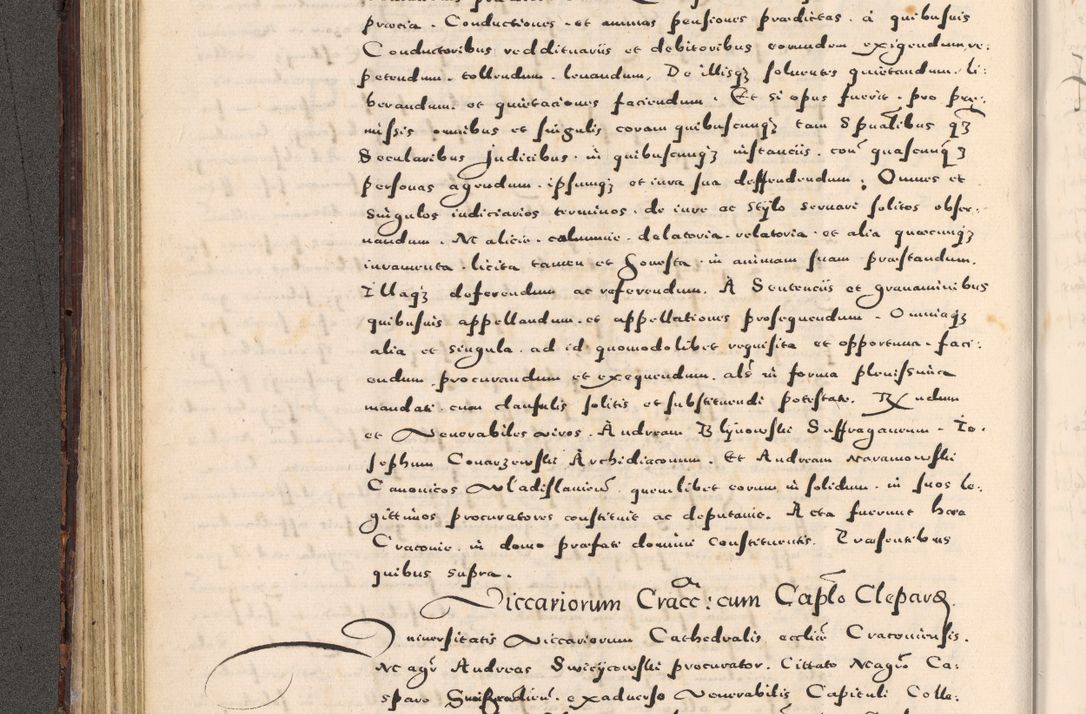 præcia . Conductiones . et annuas pensiones prædictas . à quibusuis
Conductoribus reddituariis et debitoribus eorundem exigendum, re:
petendum . tollendum . leuandum, De illisqȝ soluentes quietandum . li:
berandum . et quietaciones faciendum . Et si opus fuerit . pro præ:
missis omnibus et singulis coram quibuscunqȝ tam Spualibus qȝ
Secularibus Judicibus . in quibuscunqȝ instanciis . con quascunqȝ
personas agendum . ipsumqȝ et iura sua deffendendum ; Omnes et
Singulos iudiciarios terminos . de iure ac stylo seruari solitos obser:
uandum . Ac alicie . calumnie . delatoria . relatoria . et alia quæcunqȝ
iuramenta . licita tamen et honesta . in animam suam præstandum.
Illaqȝ deferendum ac referendum. A Sentenciis et grauaminibus
quibusuis appellandum . et appellationes prosequendum . Omniaqȝ
alia et singula . ad id quomodolibet requisita et opportuna . faci:
endum . procurandum et exequendum . als in forma plenissima
mandati . cum clausulis solitis et substituendi potestate. undum
et Venerabiles viros . Andream Blynowski Suffraganeum . Io:
sephum Conarzewski Archidiaconum . Et Andream Naramowski
Canonicos Wladislauien . quemlibet eorum in solidum . in suos le:
gittimos procuratores constituit ac deputauit. Acta fuerunt hæc
Cracouie . in domo præfati domini Constituentis. Præsentibus
quibus supra .
Viccariorum Cracc: cum Caplo Clepard.
Vniuersitatis Viccariorum Cathedralis ecclie Cracouiensis.
Magr Andreas Swicycowski procurator. Cittato Magro Ca:
sparo . exaduerso Venerabilis Capituli Colle: